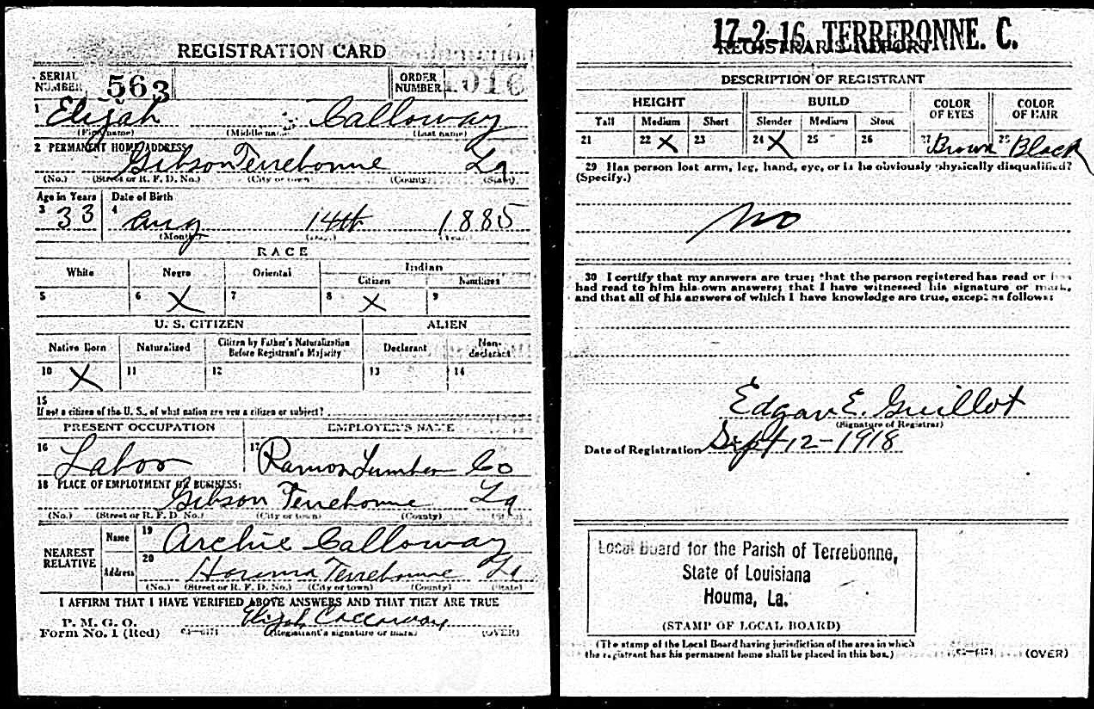 REGISTRATION CARD
SERIAL NUMBER 563
ORDER NUMBER 1016
1 Elijah Calloway
(First name) (Middle name) (Last name)
2 PERMANENT HOME ADDRESS:
Gibson Terrebonne La
(No.) (Street or R. F. D. No.) (City or town) (County) (State)
Age in Years Date of Birth
3 33 4 Aug 14th 1885
(Month) (Day) (Year)
RACE
White Negro Oriental Indian
Citizen Noncitizen
5 6 X 7 8 X 9
U. S. CITIZEN ALIEN
Native Born Naturalized Citizen by Father's Naturalization Before Registrant's Majority Declarant Non-declarant
10 X 11 12 13 14
15
If not a citizen of the U. S., of what nation are you a citizen or subject?
PRESENT OCCUPATION EMPLOYER'S NAME
16 Labor 17 Ramos Lumber Co
18 PLACE OF EMPLOYMENT OR BUSINESS:
Gibson Terrebonne La
(No.) (Street or R. F. D. No.) (City or town) (County) (State)
NEAREST RELATIVE Name 19 Archie Calloway
Address 20 Houma Terrebonne La
(No.) (Street or R. F. D. No.) (City or town) (County) (State)
I AFFIRM THAT I HAVE VERIFIED ABOVE ANSWERS AND THAT THEY ARE TRUE
P. M. G. O.
Form No. 1 (Red) Elijah Calloway
(Registrant's signature or mark) (OVER)
17-2-16 TERREBONNE. C.
REGISTRAR'S REPORT
DESCRIPTION OF REGISTRANT
HEIGHT BUILD COLOR OF EYES COLOR OF HAIR
Tall Medium Short Slender Medium Stout
21 22 X 23 24 X 25 26 27 Brown 28 Black
29 Has person lost arm, leg, hand, eye, or is he obviously physically disqualified?
(Specify.)
no
30 I certify that my answers are true; that the person registered has read or has
had read to him his own answers; that I have witnessed his signature or mark,
and that all of his answers of which I have knowledge are true, except as follows:
Edgar E. Guillot
(Signature of Registrar)
Date of Registration Sept 12-1918
Local Board for the Parish of Terrebonne,
State of Louisiana
Houma, La.
(STAMP OF LOCAL BOARD)
(The stamp of the Local Board having jurisdiction of the area in which
the registrant has his permanent home shall be placed in this box.)
(OVER)